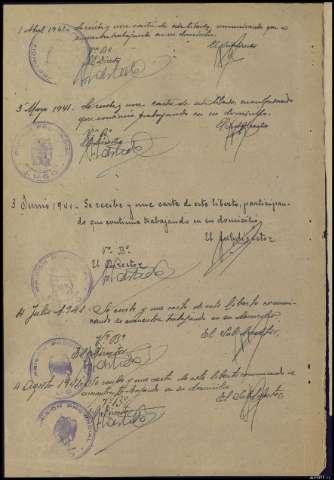 1 Abril 1941. Se recibe y une carta de este liberto, comunicando que se
encuentra trabajando en su domicilio.
Vº Bº
El Director
El Subdirector
3 Mayo 1941. Se recibe y une carta de este liberto manifestando
que continua trabajando en su domicilio.
Vº Bº
El Director
El Subdirector
3 Junio 1941. Se recibe y une carta de este liberto, participan-
do que continua trabajando en su domicilio.
El Subdirector
Vº Bº
El Director
4 Julio 1941. Se recibe y une carta de este liberto comuni-
cando se encuentra trabajando en su domicilio
Vº Bº
El Director
El Subdirector
4 Agosto 1941. Se recibe y une carta de este liberto comunicando se
encuentra trabajando en su domicilio
Vº Bº
El Director
El Subdirector
PRISION PROVINCIAL
LUGO